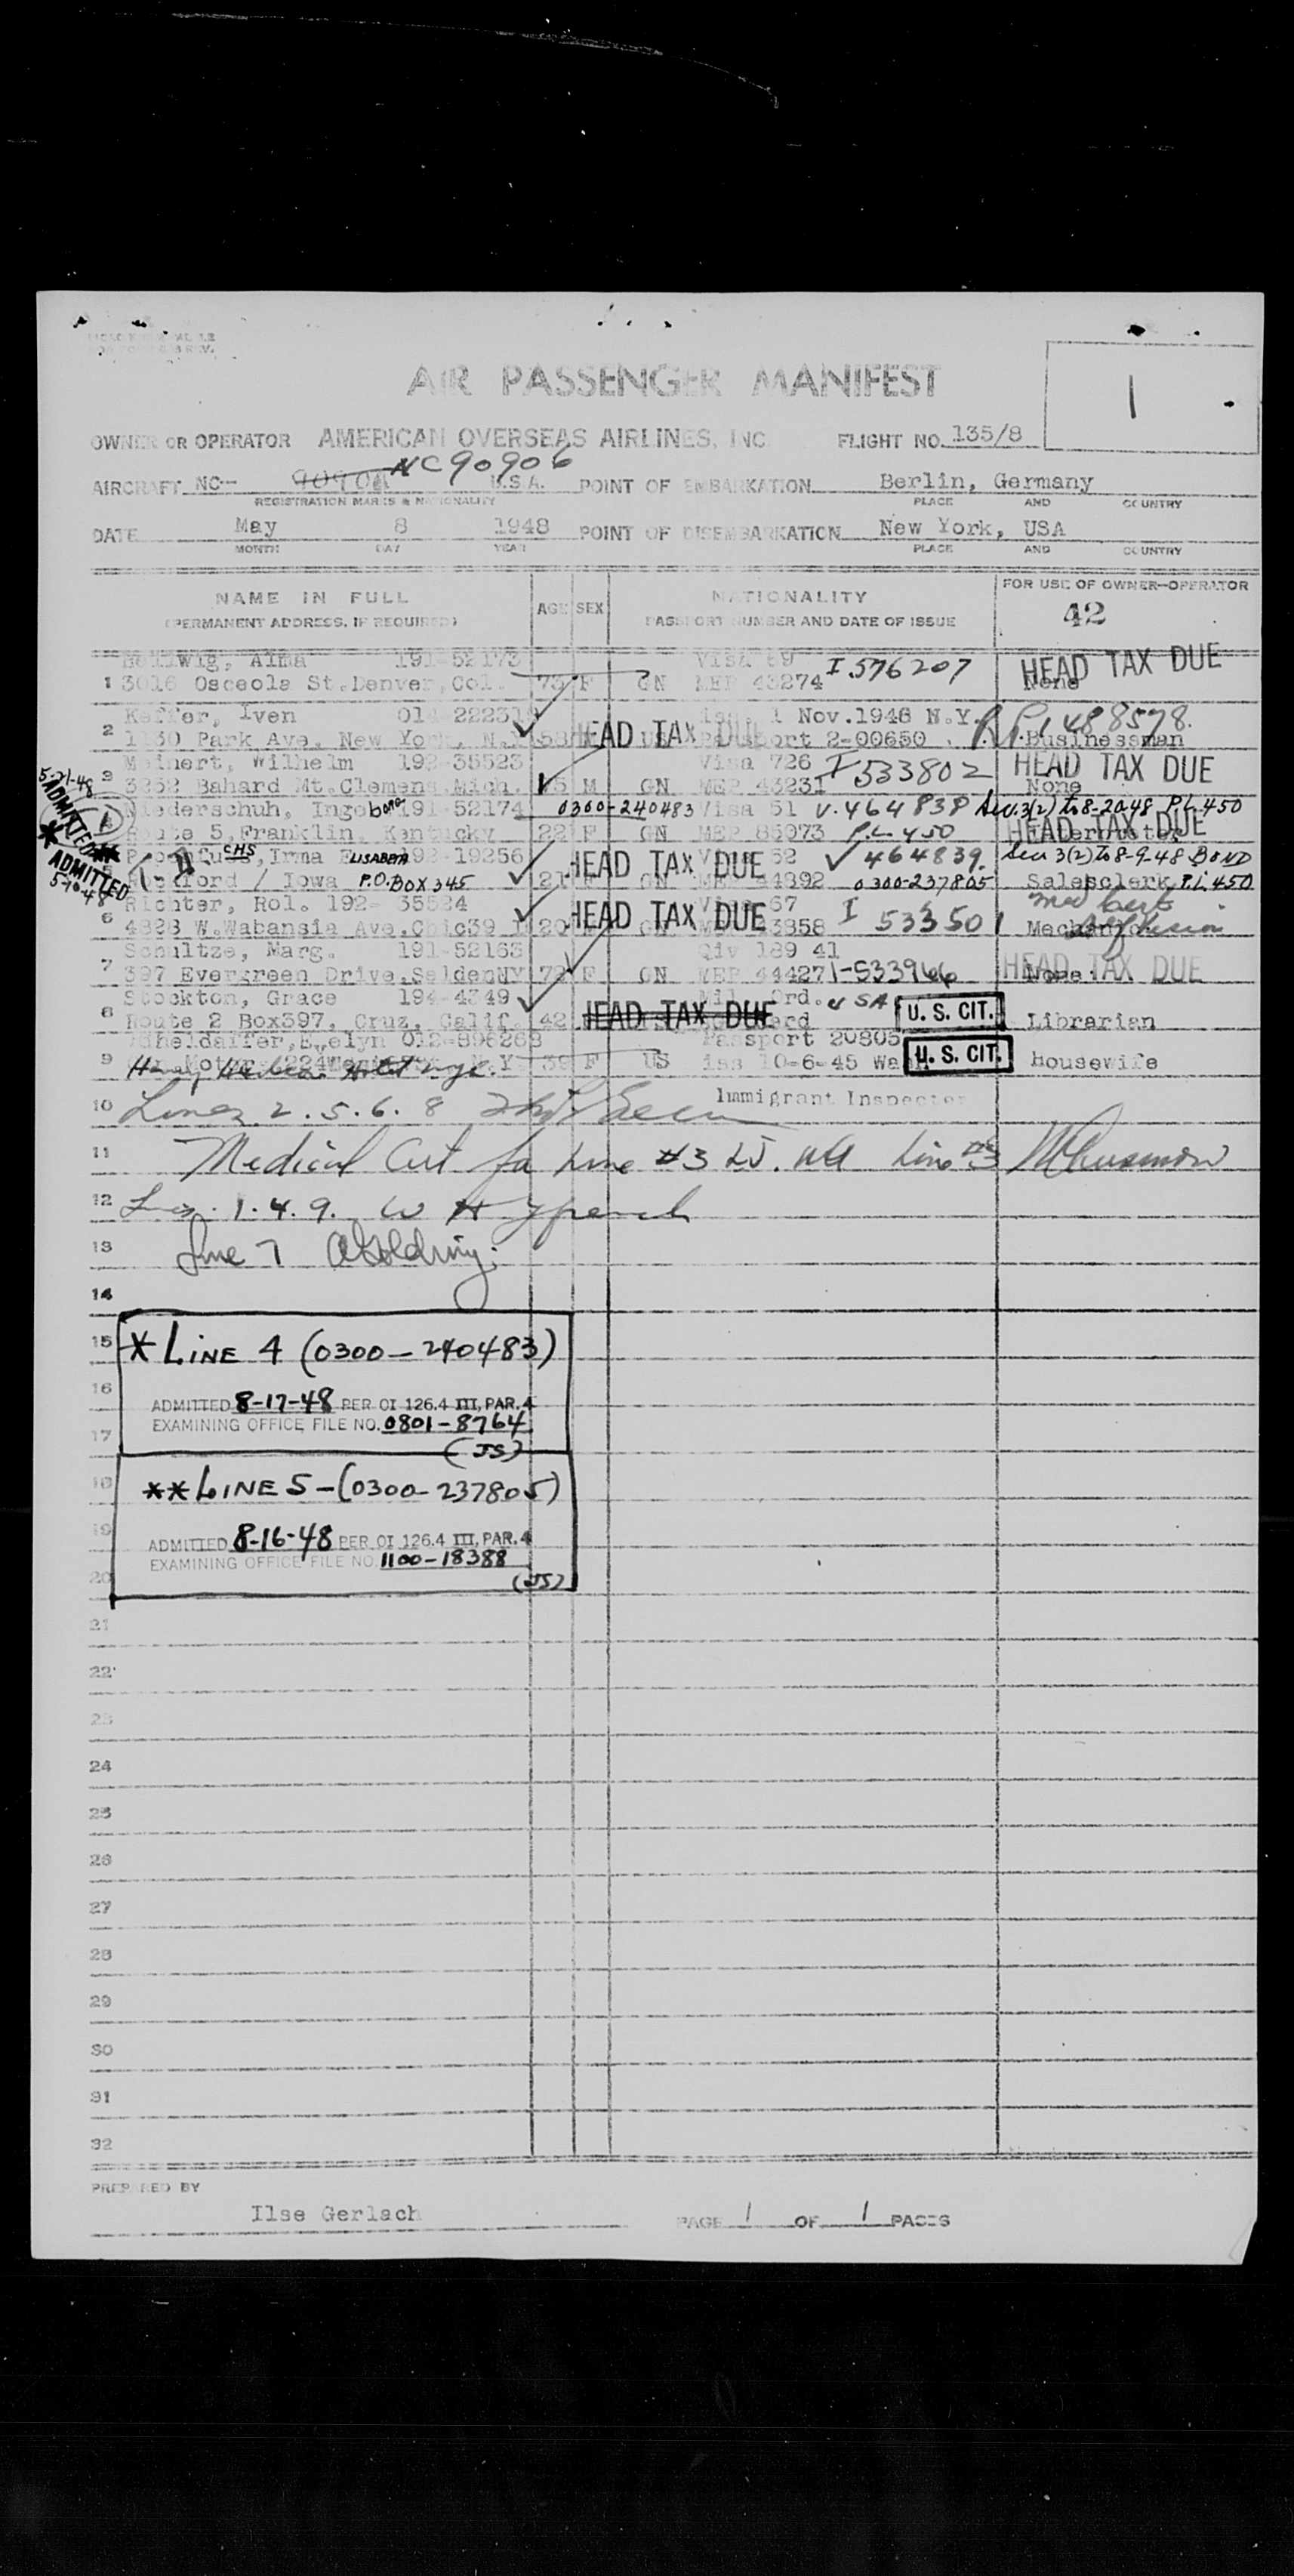 AIR PASSENGER MANIFEST
1
OWNER OR OPERATOR AMERICAN OVERSEAS AIRLINES, INC. FLIGHT NO. 135/8
AIRCRAFT NC- NC90906 U.S.A. POINT OF EMBARKATION Berlin, Germany
REGISTRATION MARKS & NATIONALITY PLACE AND COUNTRY
DATE May 8 1948 POINT OF DISEMBARKATION New York, USA
MONTH DAY YEAR PLACE AND COUNTRY
NAME IN FULL
(PERMANENT ADDRESS, IF REQUIRED)
AGE SEX
NATIONALITY
PASSPORT NUMBER AND DATE OF ISSUE
FOR USE OF OWNER-OPERATOR
42
Alma 191-52173 Visa 69 I 576207 HEAD TAX DUE
1 3016 Osceola St. Denver, Col. 73 F GN MEP 43274 None
Keffer, Iven 222319 1 Nov. 1948 N.Y. 488578
2 1130 Park Ave. New York, N.Y. HEAD TAX DUE Passport 2-00650 Businessman
Meinert, Wilhelm 192-35523 Visa 726 I 533802 HEAD TAX DUE
3 3252 Bahard Mt. Clemens Mich. M GN MEP 43231 None
5-21-48 ADMITTED
Niederschuh, Ingeborg 191-52174 0300-240483 Visa 51 V. 464838 Sec. 3(2) To 8-20-48 P.L. 450
Route 5, Franklin, Kentucky 22 F GN MEP 86073 P.L. 450 HEAD TAX DUE
** ADMITTED 5-10-48
CHS, Irma ELISABETH 192-19256 HEAD TAX DUE 464839. Sec 3(2) To 8-9-48 BOND
/ Iowa P.O. BOX 345 21 44392 0300-237805 Salesclerk P.L. 450
Richter, Rol. 192-35524 HEAD TAX DUE 67 I 533501 Med Cert
6 4328 W. Wabansia Ave. Chic 39 20 43858
Schultze, Marg. 191-52163 Qiv 189 41
7 397 Evergreen Drive, Selden NY 72 F GN MEP 44427 I-533966 HEAD TAX DUE None
Stockton, Grace 194-4349 Mil. Ord. USA U. S. CIT.
8 Route 2 Box 397, Cruz, Calif. 42 HEAD TAX DUE Librarian
Evelyn 012-896268 Passport 20805
9 N.Y. 39 F US iss 10-6-45 Wash U. S. CIT. Housewife
10 Lines 2. 5. 6. 8 Immigrant Inspector
11 Medical Cert for Line #3 Line #3
12 Lines 1. 4. 9. W H
13 Line 7 A Goldring.
14
15 * LINE 4 (0300-240483)
16 ADMITTED 8-17-48 PER OI 126.4 III, PAR. 4
17 EXAMINING OFFICE FILE NO. 0801-8764
(JS)
18 ** LINE 5-(0300-237805)
19 ADMITTED 8-16-48 PER OI 126.4 III, PAR. 4
EXAMINING OFFICE FILE NO. 1100-18388
20 (JS)
21
22
23
24
25
26
27
28
29
30
31
32
PREPARED BY
Ilse Gerlach PAGE 1 OF 1 PAGES